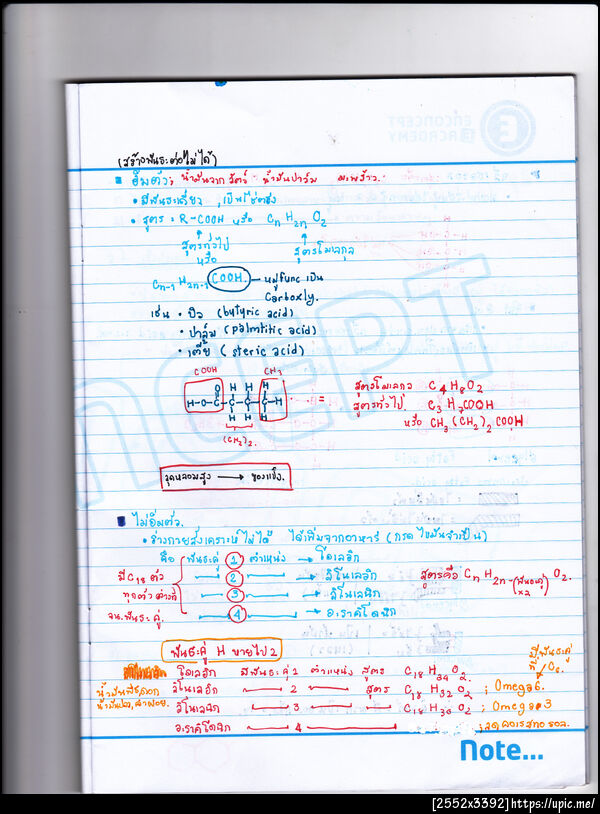 ENCONCEPT
ACADEMY
(สร้างพันธะต่อไม่ได้)
อิ่มตัว; น้ำมันจากสัตว์ น้ำมันปาล์ม มะพร้าว.
• มีพันธะเดี่ยว , เป็นไขตรง
• สูตร = R-COOH หรือ CnH2nO2
สูตรทั่วไป สูตรโมเลกุล
หรือ
Cn-1H2n-1COOH - หมู่func เป็น
Carboxly.
เช่น • บิว (butyric acid)
• ปาล์ม (palmtitic acid)
• เตีย (steric acid)
COOH CH3
H O H H H
H-O-C-C-C-C-H = สูตรโมเลกุล C4H8O2
H H H สูตรทั่วไป C3H7COOH
(CH2)2. หรือ CH3(CH2)2COOH
จุดหลอมสูง → ของแข็ง.
ไม่อิ่มตัว.
• ร่างกายสังเคราะห์ไม่ได้ ได้เพิ่มจากอาหาร (กรดไขมันจำเป็น)
คือ พันธะคู่ 1 ตำแหน่ง → โอเลอิก
มี C18 ตัว 2 → ลิโนเลอิก สูตรคือ CnH2n-(พันธะคู่x2)O2.
ทุกตัว ต่างที่ 3 → ลิโนเลนิก
จน.พันธะคู่. 4 → อะราคิโดนิก
พันธะคู่ H หายไป 2
โอเลอิก มีพันธะคู่ 1 ตำแหน่ง สูตร C18H34O2.
น้ำมันพืช,ดอก ลิโนเลอิก 2 สูตร C18H32O2 ; Omega6.
ลิโนเลนิก 3 C18H30O2 ; Omega 3
อะราคิโดนิก 4 ; ลดคอเรสเทอรอล.
Note...
NCEPT
[2552x3392]https://upic.me/